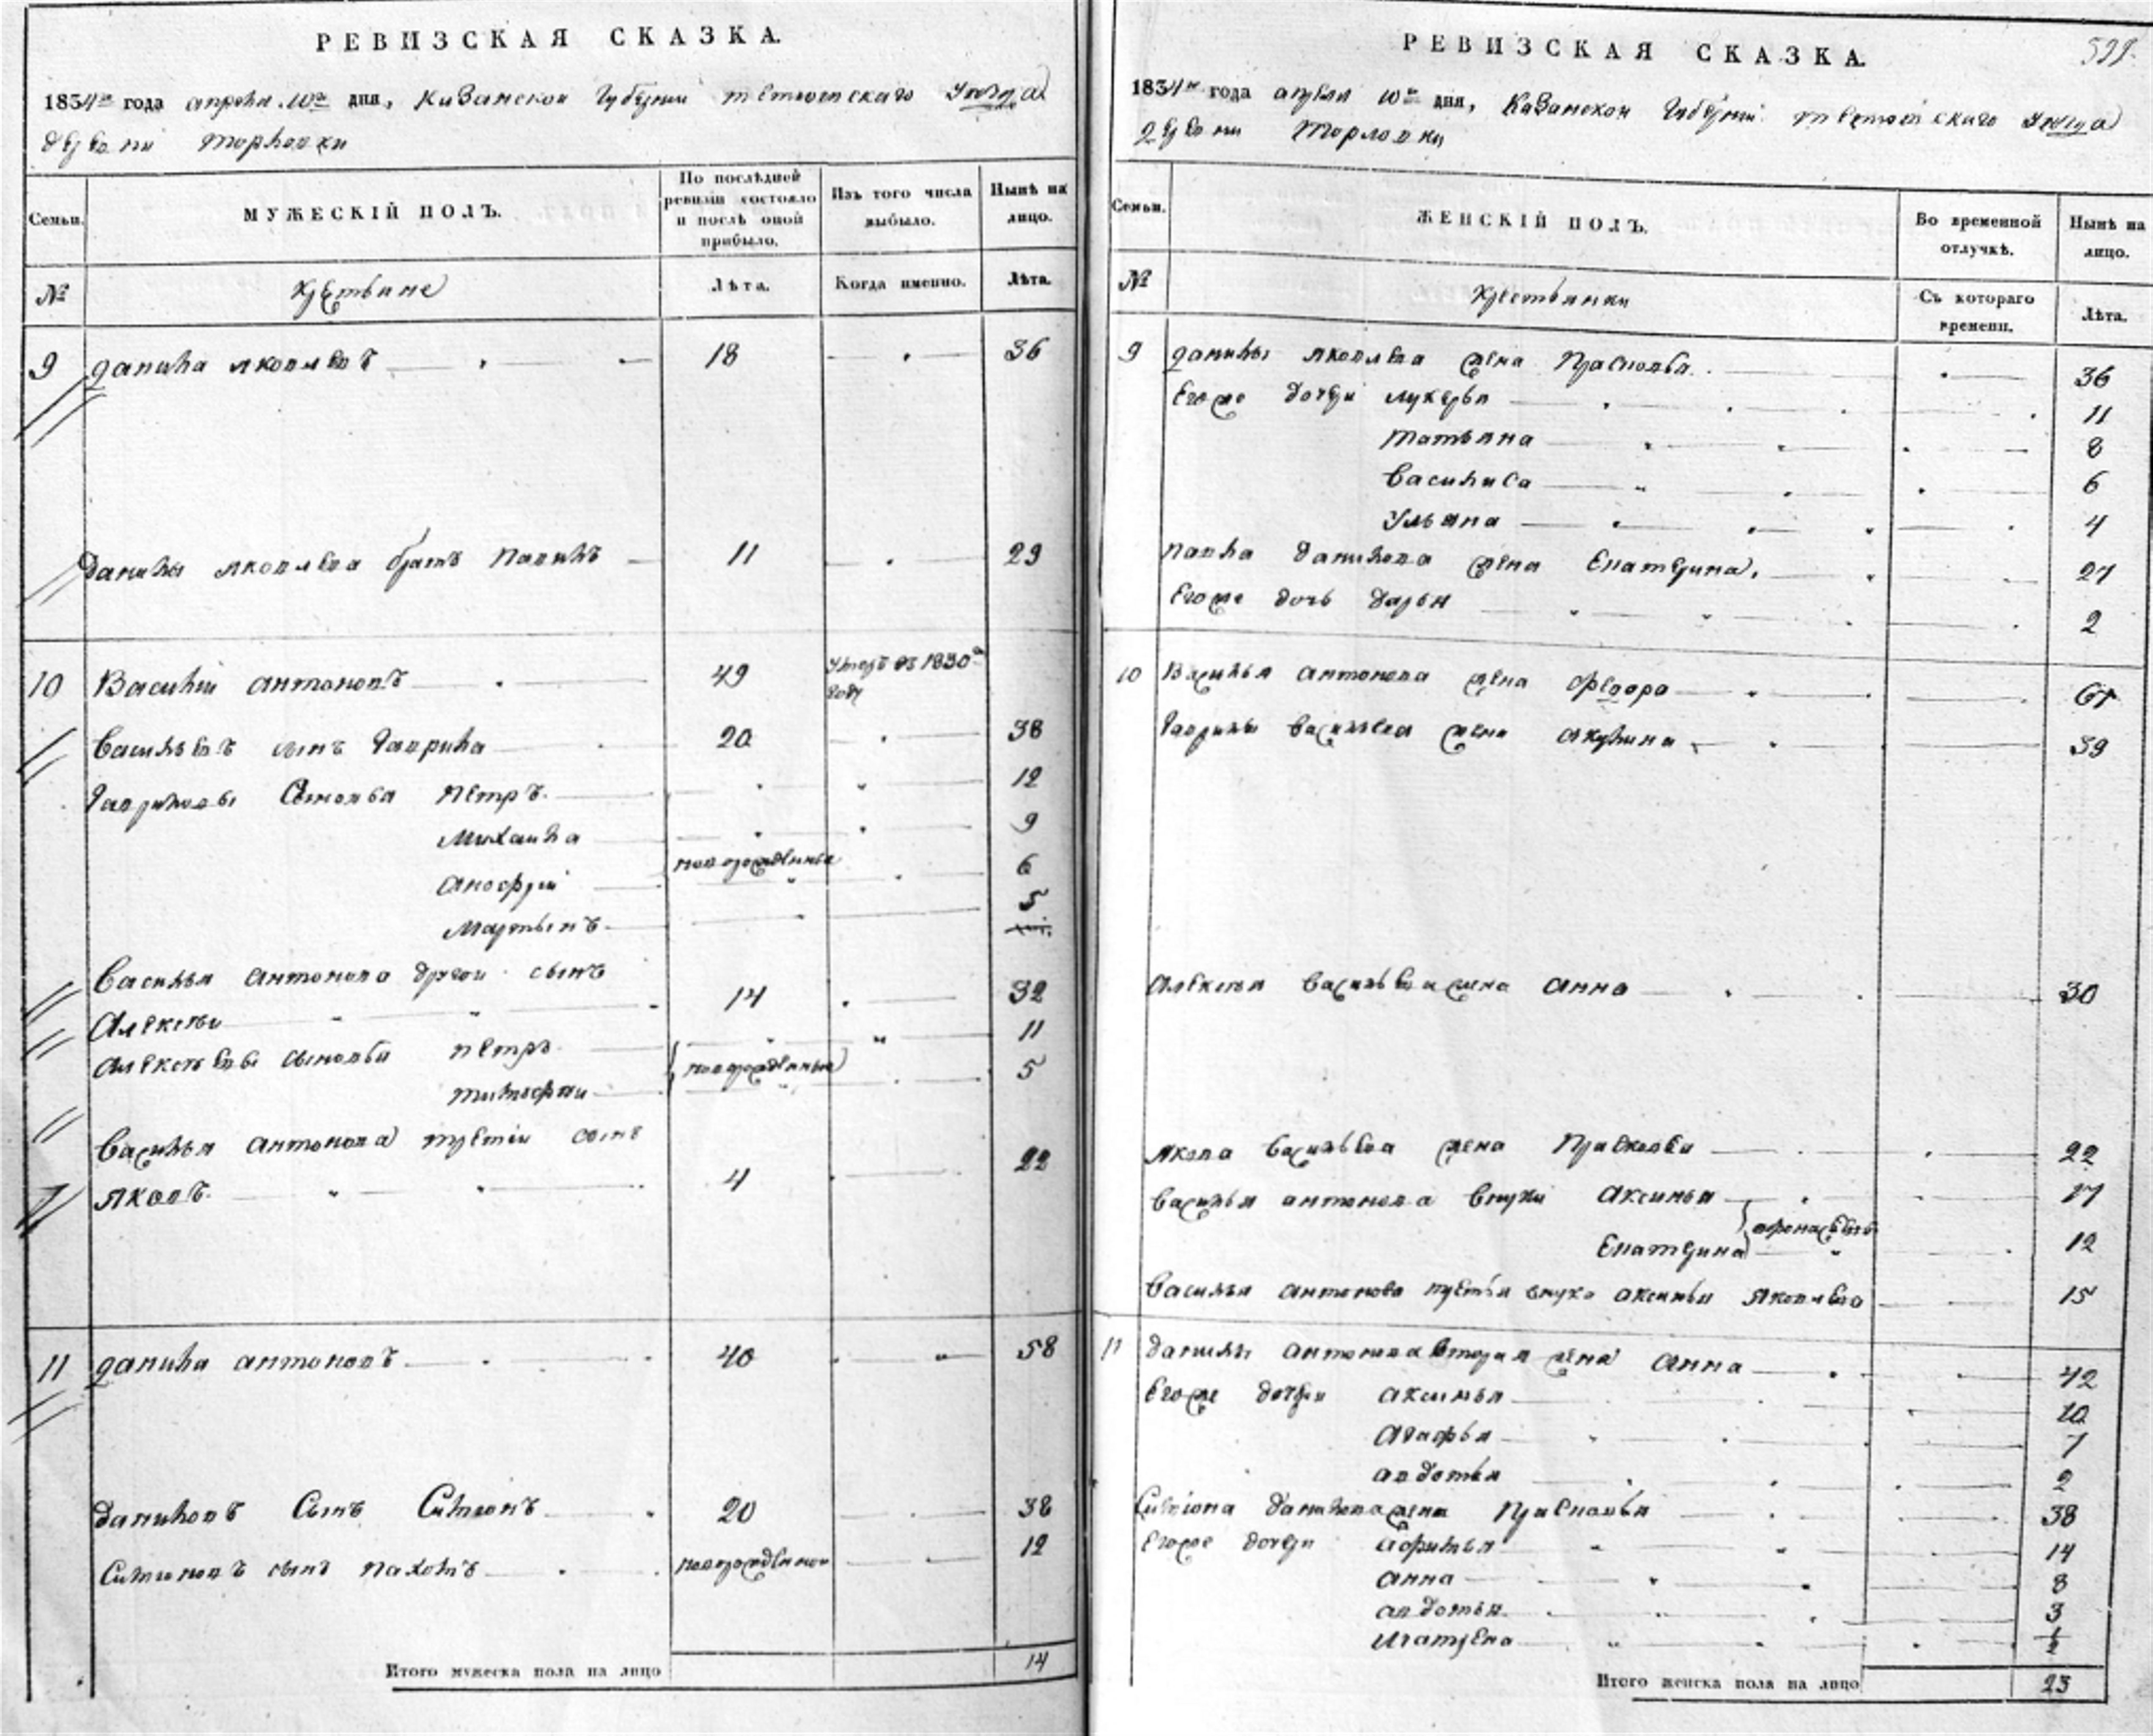 РЕВИЗСКАЯ СКАЗКА.
1834го года апреля 10го дня, Казанской Губернии тетюшскаго Уезда
деревни
Семьи.
МУЖЕСКІЙ ПОЛЪ.
По послѣдней ревизіи состояло и послѣ оной прибыло.
Изъ того числа выбыло.
Нынѣ на лицо.
№
Крестьяне
Лѣта.
Когда именно.
Лѣта.
9 Данила Яковлевъ 18 36
Данилы Яковлева братъ Павилъ 11 29
10 Василій Антоновъ 49 Умеръ въ 1830м году
Васильевъ сынъ Гаврила 20 38
Гавриловы Сыновья Петръ 12
Михаила 9
новорожденные
Анофрій 6
Мартынъ 5
Василья Антонова другой сынъ
Алексей 14 32
Алексеевы сыновья Петръ 11
новорожденные
Тимофей 5
Василья Антонова третій сынъ
Яковъ 4 22
11 Данила Антоновъ 40 58
Даниловъ Сынъ Симионъ 20 38
Симионовъ сынъ Пахомъ новорожденной 12
Итого мужеска пола на лицо 14
РЕВИЗСКАЯ СКАЗКА.
1834го года апреля 10го дня, Казанской Губернии тетюшскаго Уезда
деревни
Семьи.
ЖЕНСКІЙ ПОЛЪ.
Во временной отлучкѣ.
Нынѣ на лицо.
№
Крестьянки
Съ котораго времени.
Лѣта.
9 Данилы Яковлева жена Прасковья 36
Егоже дочери Лукерья 11
Татьяна 8
Василиса 6
Ульяна 4
жена Екатерина 27
Егоже дочь Дарья 2
10 Василья Антонова жена Федора
Гаврилы Васильева жена Акулина 39
Алексея Васильева жена Анна 30
Якова Васильева жена Прасковья 22
Василья Антонова внуки Аксинья 17
Екатерина 12
Василья Антонова третья внука Аксинья Яковлева 15
11 Данилы Антонова вторая жена Анна 42
Егоже дочери Аксинья 10
Агафья 7
Авдотья 2
Симиона Данилова жена Прасковья 38
Егоже дочери Афимья 14
Анна 8
Авдотья 3
1/2
Итого женска пола на лицо 23